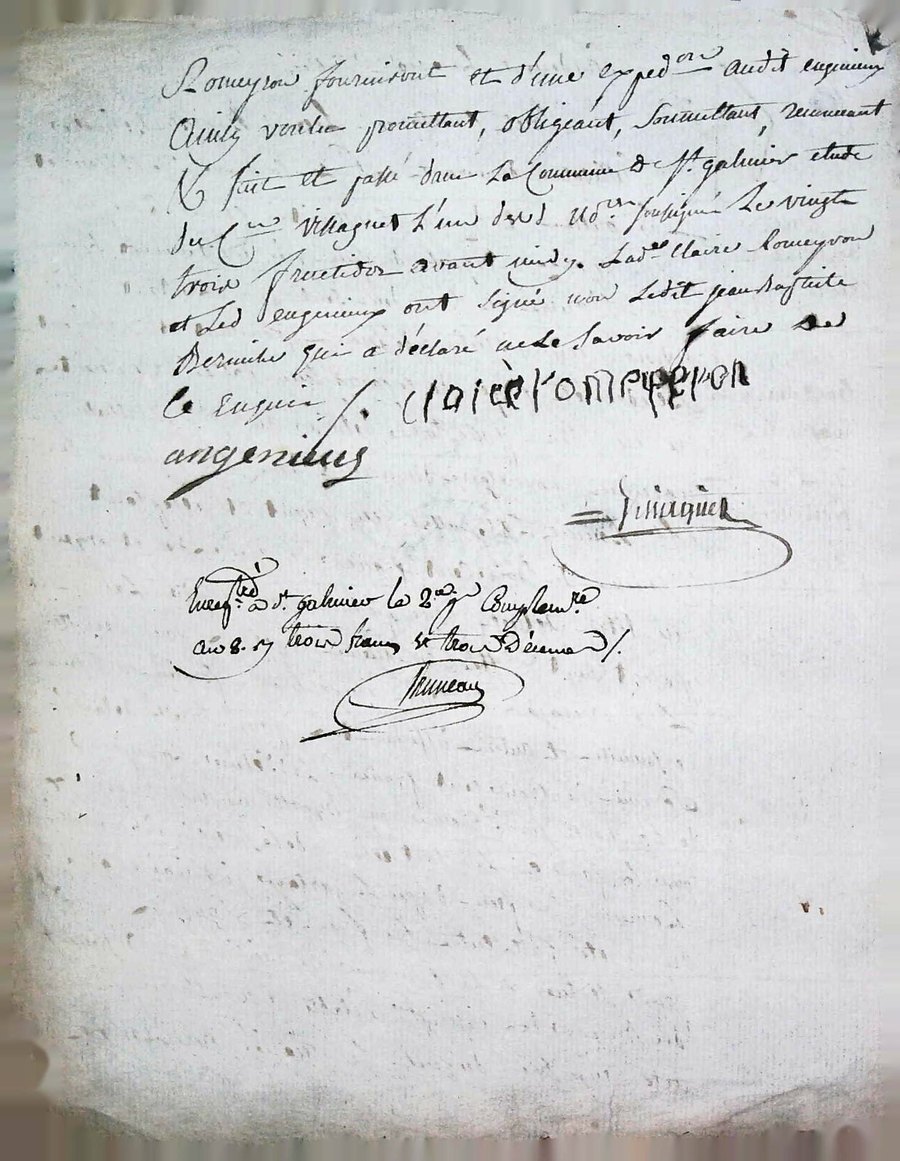 Romeyron fourniront et d'une exped.on audit engenieux
Ainsy voulu promettant, obligeant, soumettant, renonceant
& fait et passé dans la Commune de St. galmier etude
du C.en Villagnet L'un desd nores soussigné Le vingt
trois fructidor avant midy. Lade Claire Romeyron
et Led engenieux ont signé non Ledit jean Baptiste
qui a déclaré ne le savoir faire de
Ce Enquis /.
claire romeyeron
angenieus
Enregtré a St. galmier le 2me Complemre
an 8. R trois francs & trois Décimes /.
Pruneau